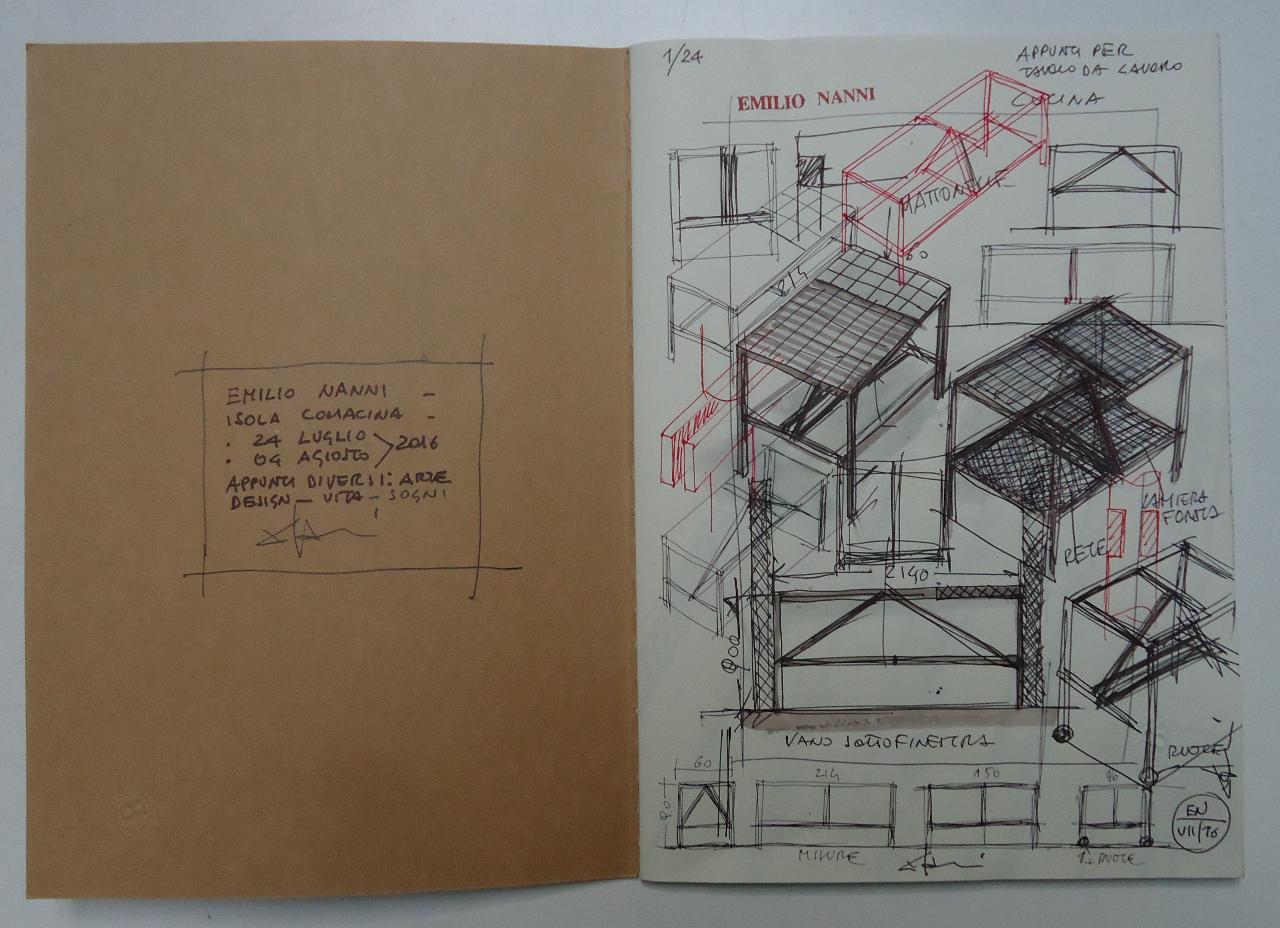 EMILIO NANNI -
ISOLA COMACINA -
. 24 LUGLIO
. 04 AGOSTO > 2016
APPUNTI DIVERSI: ARTE
DESIGN - VITA - SOGNI
1/24
APPUNTI PER
TAVOLO DA LAVORO
CUCINA
EMILIO NANNI
MATTONELLE
60
214
LAMIERA
FORATA
RETE
2140
900
VANO SOTTOFINESTRA
RUOTE
60
214
150
90
90
EN
VII/16
MISURE
RUOTE